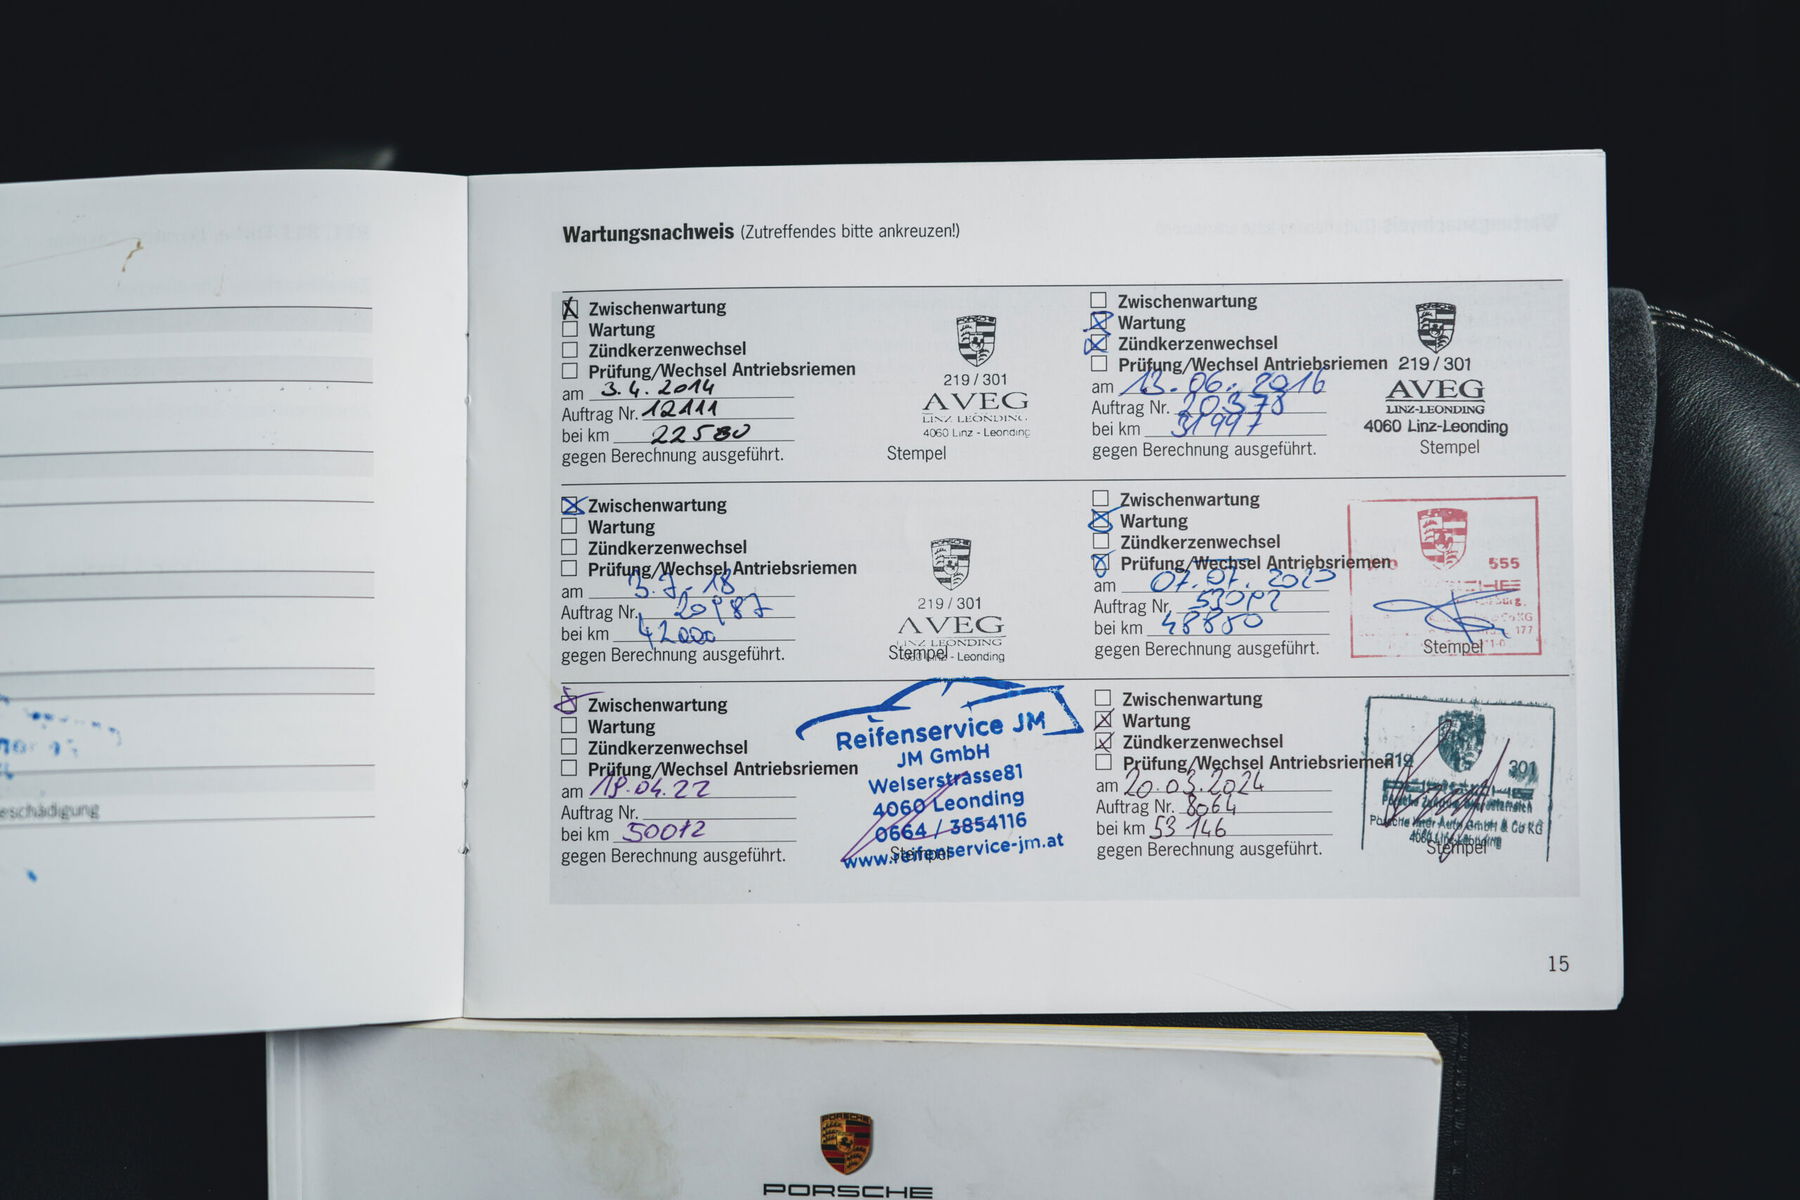 Wartungsnachweis (Zutreffendes bitte ankreuzen!)
Zwischenwartung
Wartung
Zündkerzenwechsel
Prüfung/Wechsel Antriebsriemen
am 3.4.2014
Auftrag Nr. 12111
bei km 22580
gegen Berechnung ausgeführt.
PORSCHE
219/301
AVEG
LINZ LEONDING
4060 Linz - Leonding
Stempel
Zwischenwartung
Wartung
Zündkerzenwechsel
Prüfung/Wechsel Antriebsriemen
am 13.06.2016
Auftrag Nr. 20378
bei km 31997
gegen Berechnung ausgeführt.
219/301
AVEG
LINZ-LEONDING
4060 Linz-Leonding
Stempel
Zwischenwartung
Wartung
Zündkerzenwechsel
Prüfung/Wechsel Antriebsriemen
am 3.7.18
Auftrag Nr. 20987
bei km 42000
gegen Berechnung ausgeführt.
PORSCHE
219/301
AVEG
LINZ LEONDING
Stempel - Leonding
Zwischenwartung
Wartung
Zündkerzenwechsel
Prüfung/Wechsel Antriebsriemen
am 07.07.2020
Auftrag Nr.
bei km 48880
gegen Berechnung ausgeführt.
555
Stempel
Zwischenwartung
Wartung
Zündkerzenwechsel
Prüfung/Wechsel Antriebsriemen
am 19.04.22
Auftrag Nr.
bei km 50072
gegen Berechnung ausgeführt.
Reifenservice JM
JM GmbH
Welserstrasse81
4060 Leonding
0664 / 3854116
www.reifenservice-jm.at
Stempel
Zwischenwartung
Wartung
Zündkerzenwechsel
Prüfung/Wechsel Antriebsriemen
am 20.03.2024
Auftrag Nr. 8064
bei km 53 146
gegen Berechnung ausgeführt.
219 301
Porsche Inter Auto GmbH & Co KG
Stempel
15
PORSCHE
PORSCHE